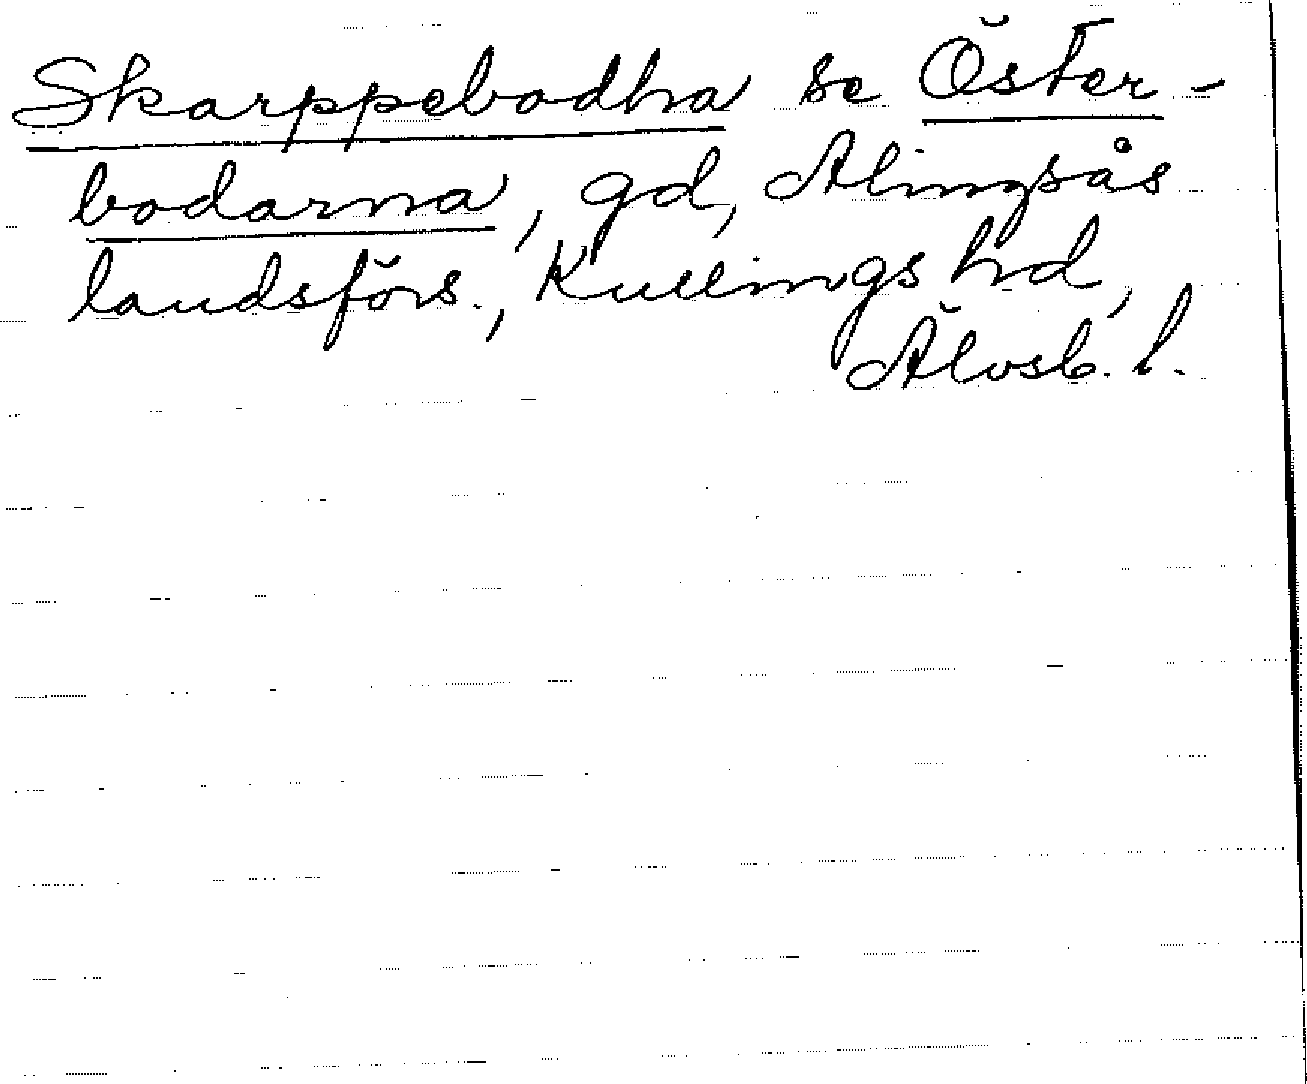 Skarppebodha se Öster-
bodarna, gd, Alingsås
landsförs., Kullings hd,
Älvsb. l.